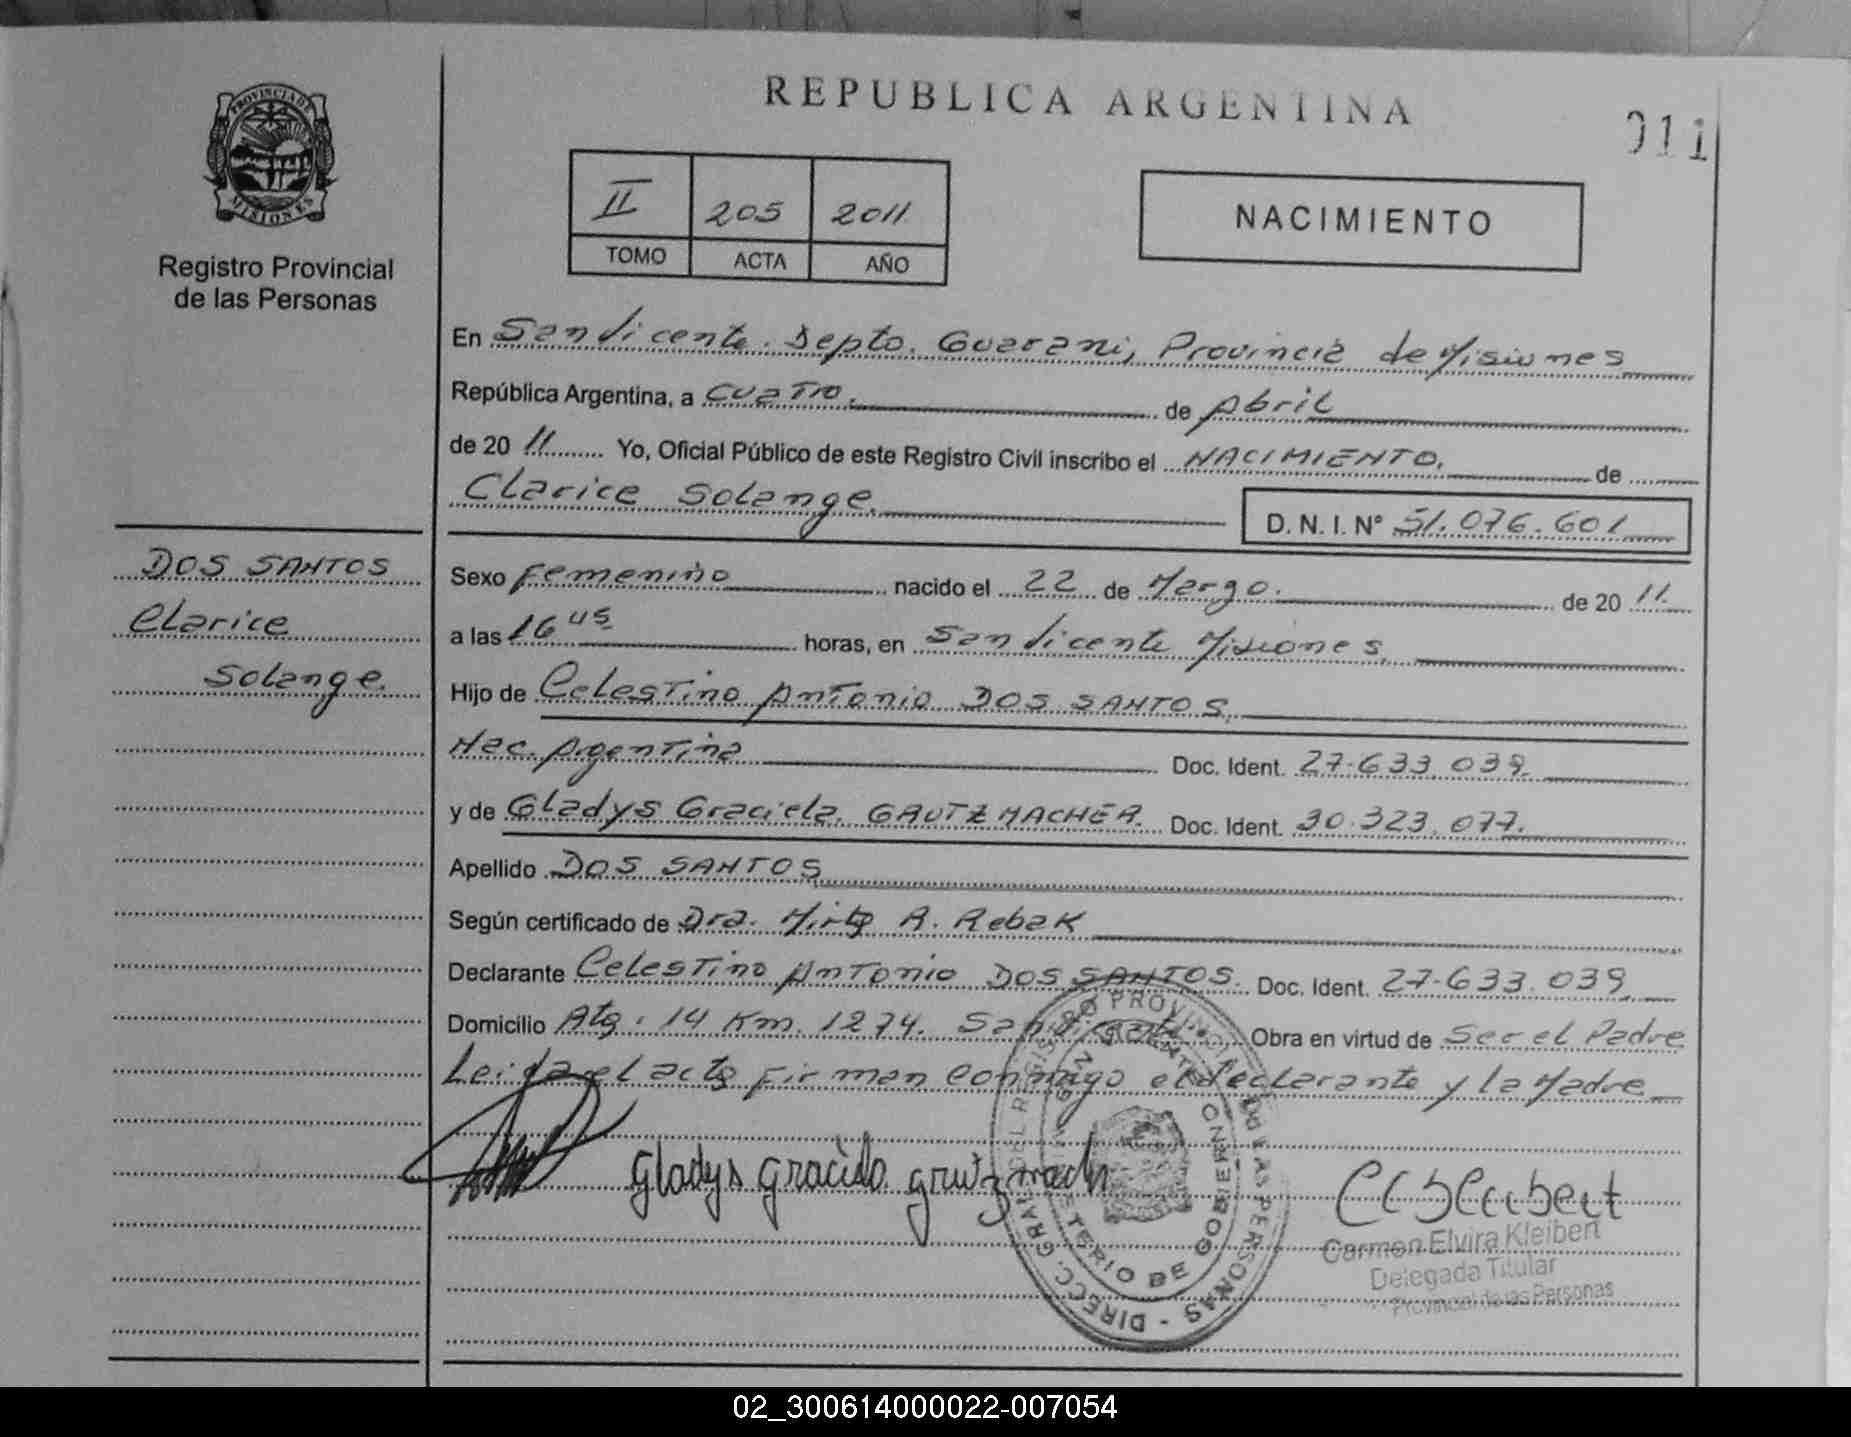 REPUBLICA ARGENTINA
011
PROVINCIA DE
MISIONES
Registro Provincial
de las Personas
II 205 2011
TOMO ACTA AÑO
NACIMIENTO
En San Vicente. Depto. Guarani, Provincia de Misiones
República Argentina, a cuatro. de Abril
de 20 11 Yo, Oficial Público de este Registro Civil inscribo el NACIMIENTO. de
Clarice Solange. D. N. I. N° 51.076.601
DOS SANTOS
Clarice
Solange.
Sexo Femenino nacido el 22 de Marzo. de 20 11.
a las 16 45 horas, en San Vicente Misiones.
Hijo de Celestino Antonio DOS SANTOS.
Nac. Argentina Doc. Ident. 27.633.039.
y de Gladys Graciela. GRUTZMACHER. Doc. Ident. 30.323.077.
Apellido DOS SANTOS
Según certificado de Dra. Mirta R. Rebak
Declarante Celestino Antonio DOS SANTOS. Doc. Ident. 27.633.039
Domicilio Atg. 14 Km. 1274. San Vicente Obra en virtud de Ser el Padre
Leida el acta firman conmigo el declarante y la Madre
Gladys Graciela grutzmach
Carmen Elvira Kleibert
Delegada Titular
Provincial de las Personas
DIRECC. GRAL. DEL REGISTRO PROVINCIAL DE LAS PERSONAS
MINISTERIO DE GOBIERNO
02_300614000022-007054